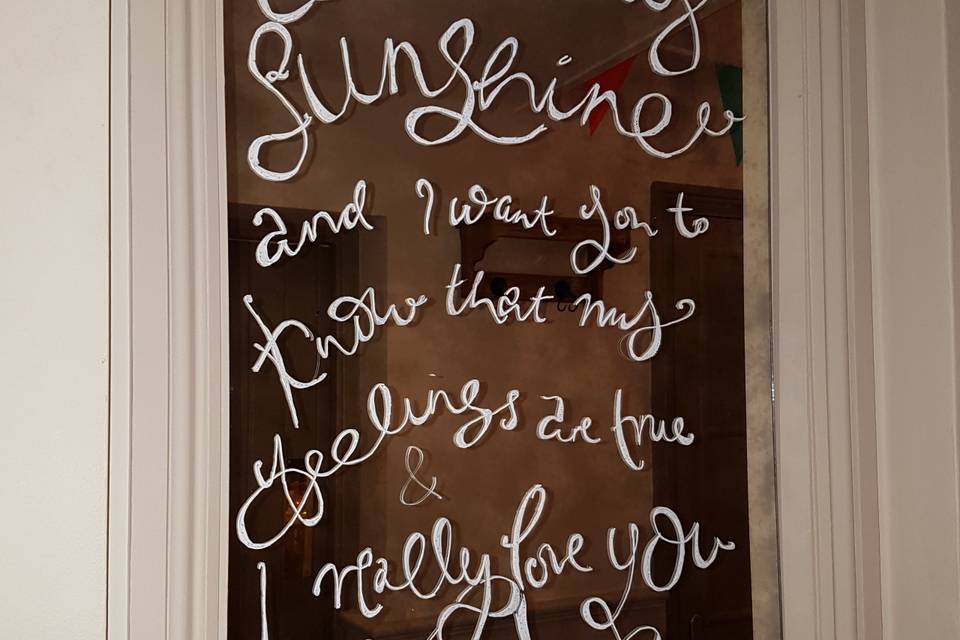 Sunshine
and I want you to
know that my
feelings are true
&
I really love you